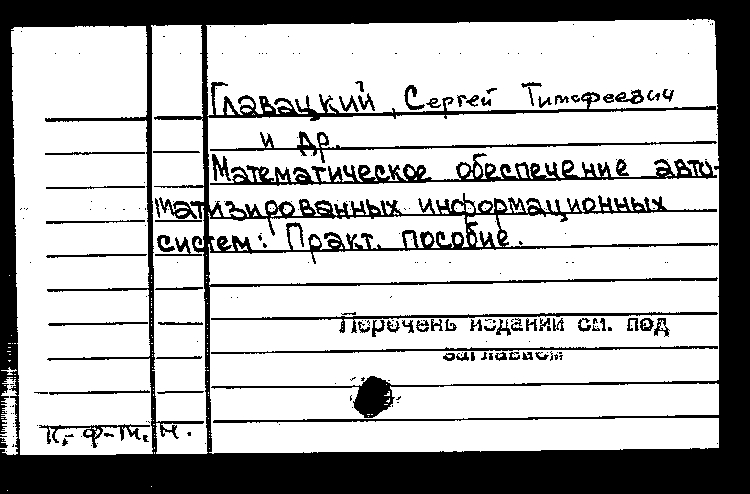 Главацкий, Сергей Тимофеевич
и др.
Математическое обеспечение авто-
матизированных информационных
систем: Практ. пособие.
Перечень изданий см. под
заглавием
К. ф-м. н.